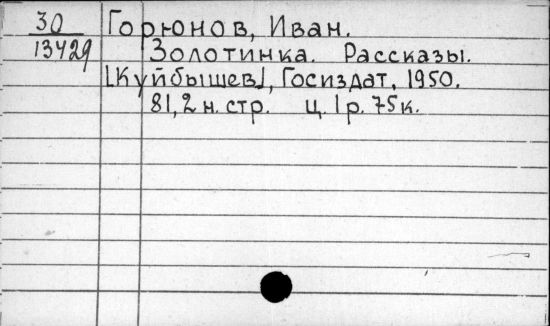 30 Горюнов, Иван.
13429 Золотинка. Рассказы.
[Куйбышев], Госиздат, 1950.
81,2 н. стр. ц. 1 р. 75 к.